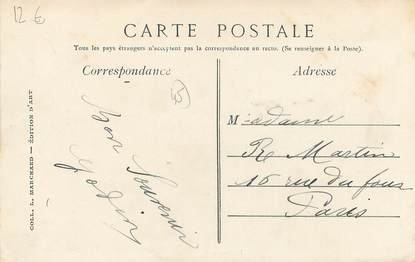 12 €
CARTE POSTALE
Tous les pays étrangers n'acceptent pas la correspondance au recto. (Se renseigner à la Poste).
Correspondance
Adresse
COLL. L. MARCHAND — ÉDITION D'ART
Bon Souvenir
Madame
R. Martin
16 rue du four
Paris